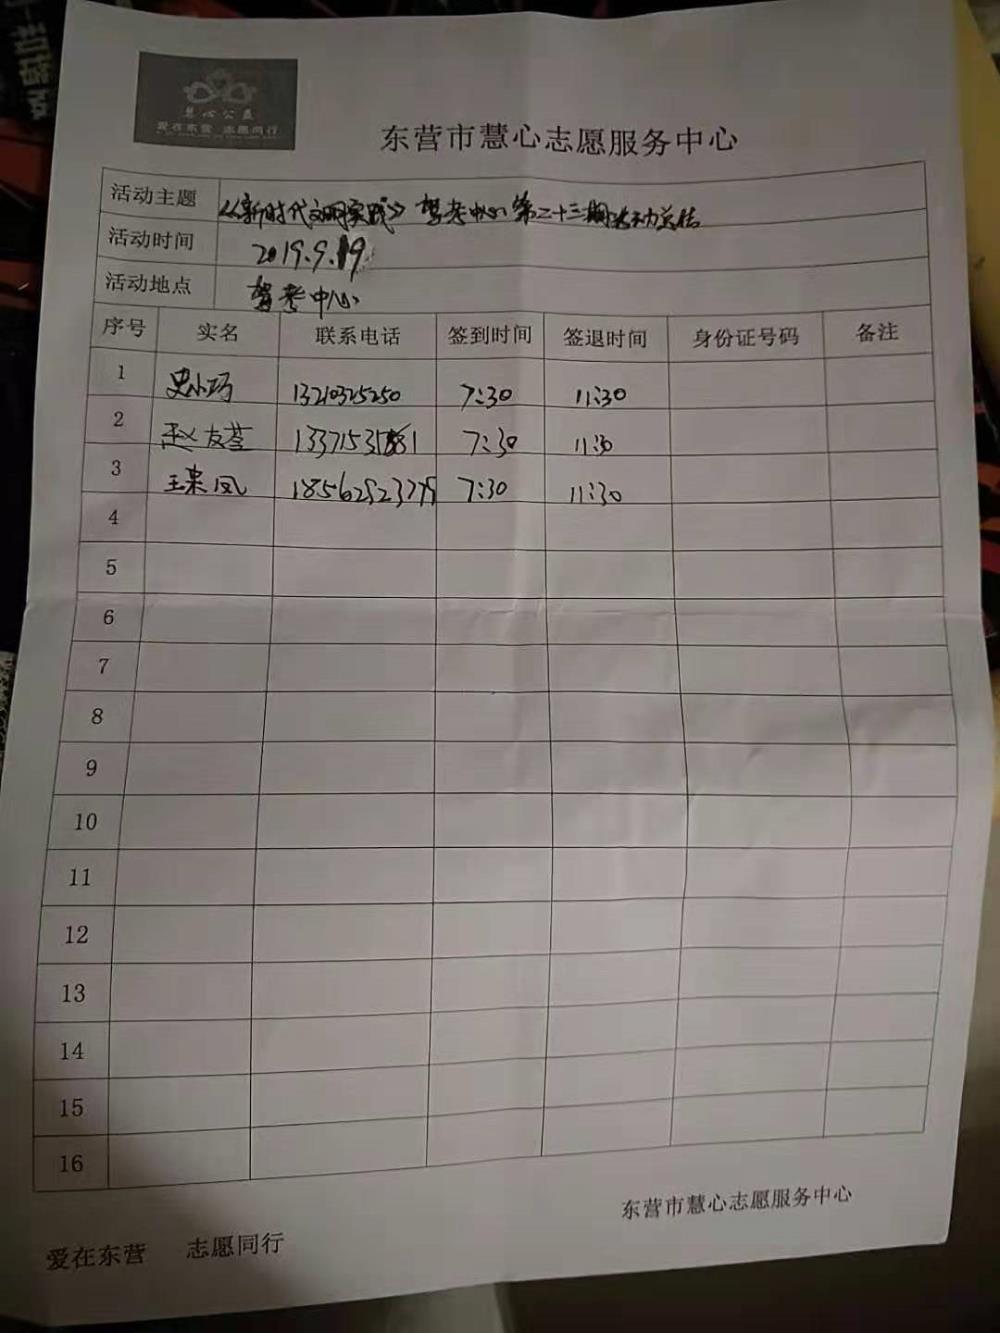 慧心公益
爱在东营 志愿同行
东营市慧心志愿服务中心
活动主题 《新时代文明实践》驾考中心第二十三期活动总结
活动时间 2019.9.19
活动地点 驾考中心
序号 实名 联系电话 签到时间 签退时间 身份证号码 备注
1 史小巧 13210325250 7:30 11:30
2 赵友 7:30 11:30
3 王果凤 7:30 11:30
4
5
6
7
8
9
10
11
12
13
14
15
16
东营市慧心志愿服务中心
爱在东营 志愿同行